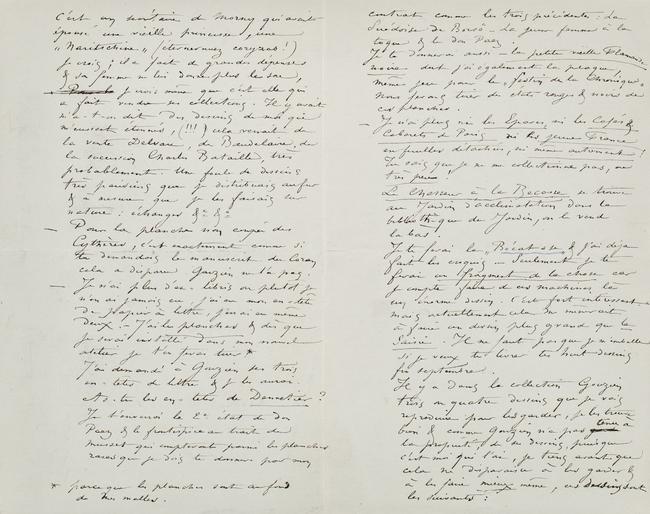 c'est un secrétaire de Morny qui avait
épousé une vieille princesse, une
"Narischkine" (éternuement coryzas!)
Je crois qu'il a fait de grandes dépenses
& sa femme ne lui donne plus le sac,
Je crois même que c'est elle qui
a fait vendre ses collections. Il y avait
m'a-t-on dit des dessins de moi qui
m'eussent étonné, (!!!) cela venait de
la vente Delvau, de Baudelaire, de
la succession Charles Bataille, très
probablement. Une foule de dessins
très curieux que je distribuais au fur
& à mesure que je les faisais sur
nature: échanger & & &
— Pour la planche non coupée des
Cythères, c'est exactement comme si
tu demandais le manuscrit du Coran
cela a disparu Gouzien ne l'a pas.
— Je n'ai plus d'ex-libris ou plutôt je
n'en ai jamais eu. J'ai eu mon en-tête
de papier à lettre, j'en ai même
deux. J'ai les planches & dès que
je serai installé dans mon nouvel
atelier je t'en ferai tirer *
J'ai demandé à Gouzien ses trois
en-têtes de lettre & je les aurai.
As-tu les en-têtes de Dommartin?
Je t'enverrai le 2e état de Don
Paez & le frontispice au trait de
Musset qui compteront parmi les planches
rares que je dois te donner par mon
* parce que les planches sont au fond
de mes malles.
contrat comme les trois précédents: La
Suédoise de Borsö. La jeune femme à la
toque & le Don Paez
Je te donnerai aussi la petite vieille Flamande
noire dont j'ai également la plaque,
même jeu pour le festin de la Chronique.
Nous ferons tirer des états rouges & noirs de
ces planches.
— Je n'ai plus ni les Epaves, ni les Cafés &
Cabarets de Paris ni les jeune France
en feuilles détachées, ni même autrement!
Tu sais que je ne me collectionne pas, ou
très peu!
Le Chasseur à la Bécasse se trouve
au Jardin d'acclimatation dans la
bibliothèque du Jardin, on le vend
là bas.
Je te ferai la "Bécasse" & j'ai déjà
fait les croquis — seulement je te
ferai un fragment de la chose car
je compte faire de ces machines là
un énorme dessin. C'est fort intéressant —
mais actuellement cela me mènerait
à faire un dessin plus grand que la
Saisie. Il ne faut pas que je m'emballe
si je veux te livrer tes huit dessins
fin septembre.
Il y a dans la collection Gouzien
trois ou quatre dessins que je vais
reproduire pour les garder, je les trouve
bons & comme Gouzien n'a pas
la propriété de ces dessins, puisque
c'est moi qui l'ai, je tiens avant que
cela ne disparaisse à les garder &
à les faire mieux même, ces dessins sont
les suivants: